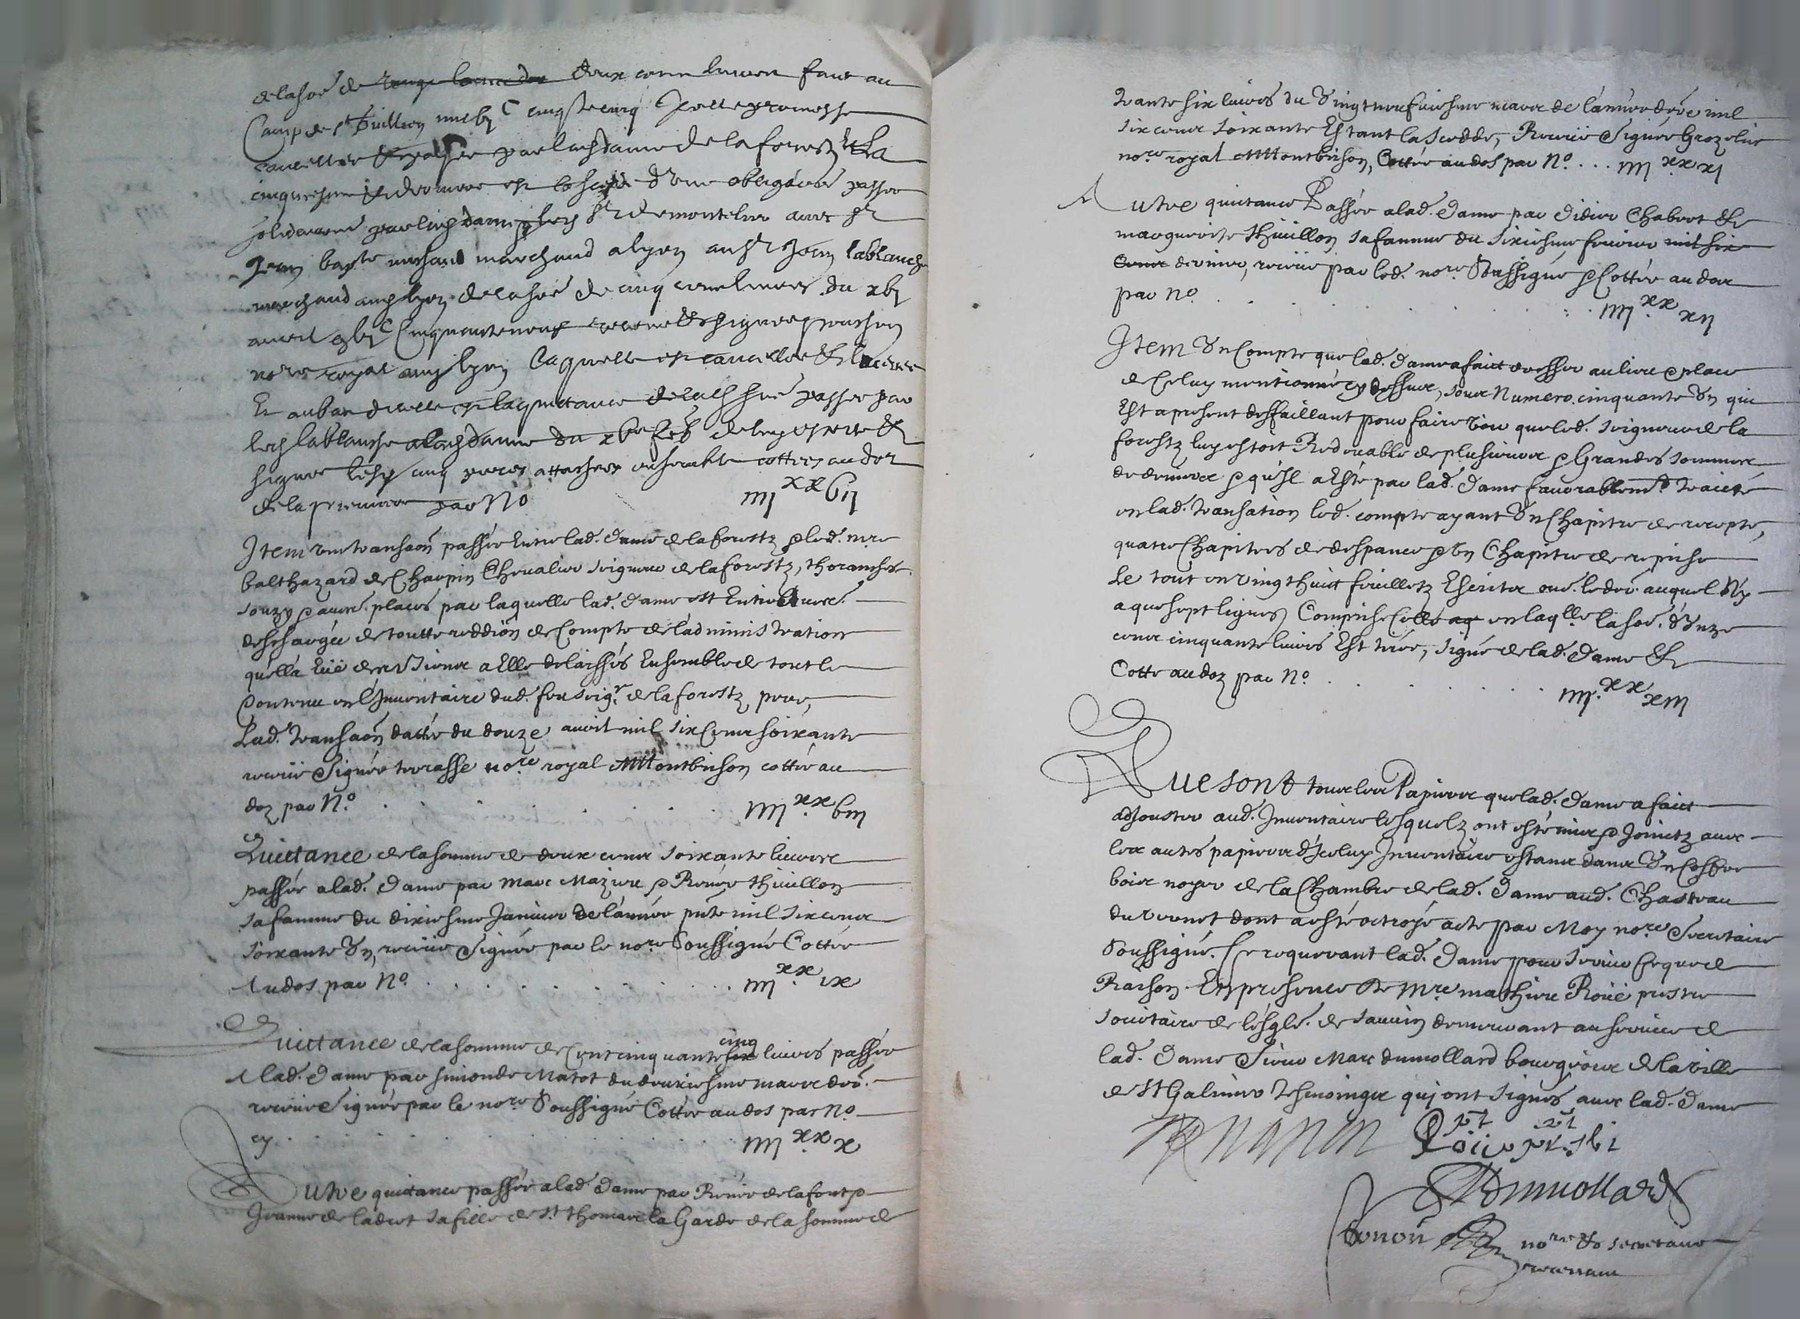 de la so.e de deux cens livres faict au
Camp de St Guillem
par lad. dame de la forestz La
cinquiesme & derniere est d'une obliga.on passée
solidairement par lad. dame & led. Sr de montelier avec Sr
Jean bap.te marchand a lyon au Sr Jean lablanche
marchand aud. lyon de la so.e de cinq cens livres du xbj
avril cinquante neuf receue & signée
no.re royal aud. lyon laquelle est cancellée &
Et au bas d'icelle est la quittance de lad. so.e passée par
led. lablanche a lad. dame du de luy escrite &
signée lesd. cinq pieces attachees ensemble cottees au doz
de la premiere par No iiij xx bij
Item une transa.on passée Entre lad. dame de la forestz & led. m.re
balthazard de Charpin Chevalier seigneur de la forestz, thoranches
souzy & autre. places par laquelle lad. dame est Entierem.t
deschargée de toutte reddi.on de Compte de l'administration
qu'ella Eüe des biens a Elle delaissés Ensemble de tout le
Contenu en l'Inventaire dud. feu seig.r de la forestz, pour,
Lad. transa.on datée du douze avril mil six cens soixante
receüe Signée terrasse no.re royal a Montbrison cottée au
doz par No. iiij xx biij
Quittance de la somme de deux cens soixante livres
passée a lad. dame par Marc Mazieu & Renée thivillon
sa famme du dixiesme Janvier de l'année p.nte mil six cens
soixante Un, receüe Signée par le no.re Soussigné Cottée
Au dos par No. iiij xx ix
Quittance de la somme de Cent cinquante cinq livres passée
A lad. dame par simonde Matot du deuxiesme mars der.
receüe Signée par le no.re Soussigné Cottée au dos par No.
cy iiij xx x
Autre quittance passée a lad. dame par Renée de la font &
Jeanne de ladret sa fille de St thomas la Garde de la somme de
trante six livres du Vingt neufviesme mars de l'année der.e mil
six cens soixante Estant la scedde, Receüe Signée Grozelier
no.re royal a Montbrison, Cottée au dos par No. iiij xx xj
Autre quittance Passée a lad. dame par didier Chabert &
marguerite thivillon sa famme du sixiesme fevrier mil six
Cens dernier, receüe par led. no.re Soussigné & Cottée au dos
par No. iiij xx xij
Item Un Compte que lad. dame a faict dresser au lieu & place
de Celuy mentionné cy dessus, sous Numero cinquante Un qui
Est a present deffaillant pour faire voir que led. seigneur de la
forestz luy estoit Redevable de plusieurs & Grandes sommes
de deniers & qu'il a Esté par lad. dame favorablem.t traicté
en lad. transation led. compte ayant Un Chapitre de recepte,
quatre Chapitres de despance & Un Chapitre de reprise
Le tout en Vingt huict feuilletz Escritz au. le der. auquel N'y
a que sept lignes Comprise Celle en laq.lle la so.e d'Unze
cens cinquante livres Est tirée, signé de lad. dame &
Cotté au doz par No. iiij xx xiij
Que sont tous les Papiers que lad. dame a faict
adjouster aud. Inventaire lesquelz ont esté mis & Joinctz avec
les autres papiers d'Iceluy Inventaire estans dans Un Coffre
bois noyer de la Chambre de lad. dame aud. Chasteau
du vernet dont a esté octroyé acte par Moy no.re Secretaire
Soussigné. Ce requerant lad. dame pour servir Ce que de
Raison. En presence de M.re mathieu Roüe prestre
societaire de l'esgl.e de sauvin demeurant au service de
lad. dame Sieur Marc dumollard bourgeois de la ville
de St Galmier tesmoingz qui ont signés avec lad. dame
Roüe
Dumollard
no.re & secretaire
recevant